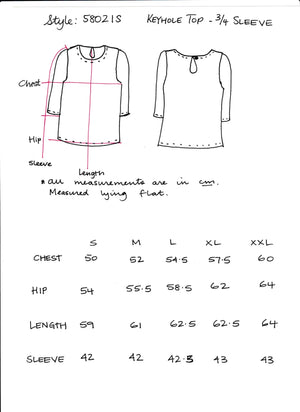 Style: 5802IS KEYHOLE TOP - 3/4 SLEEVE
Chest
Hip
Sleeve
Length
* all measurements are in cm.
Measured lying flat.
S M L XL XXL
CHEST 50 52 54.5 57.5 60
HIP 54 55.5 58.5 62 64
LENGTH 59 61 62.5 62.5 64
SLEEVE 42 42 42.5 43 43